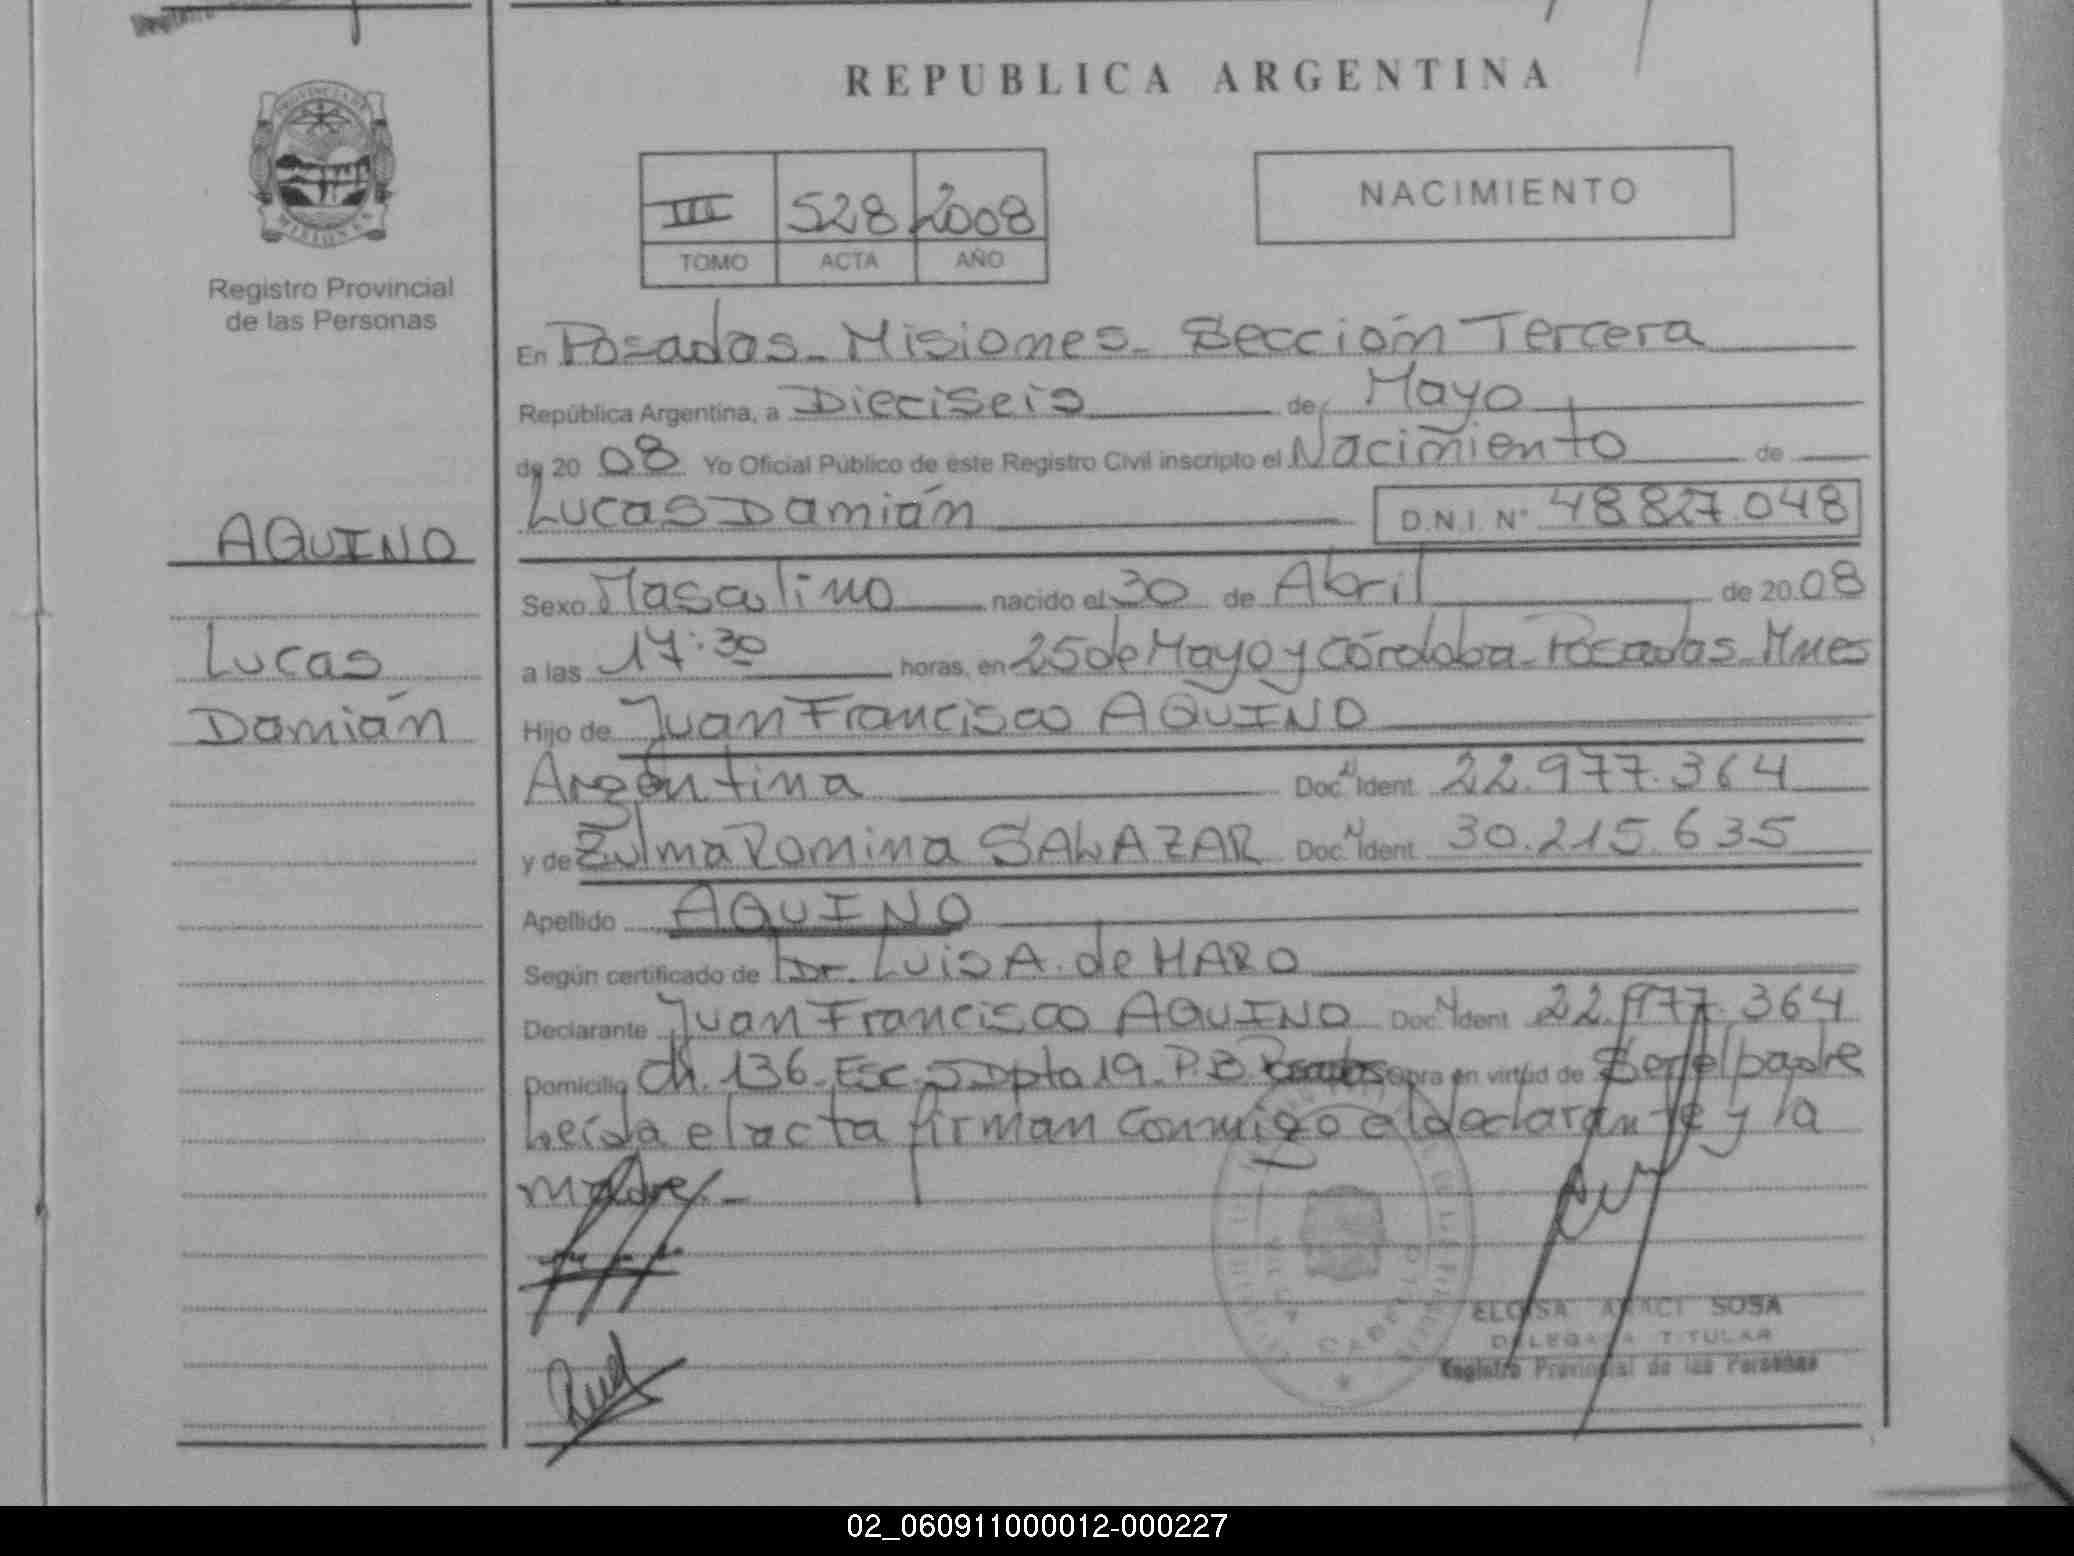 REPUBLICA ARGENTINA
III 528 2008
TOMO ACTA AÑO
NACIMIENTO
Registro Provincial
de las Personas
AQUINO
Lucas
Damián
En Posadas - Misiones - Sección Tercera
República Argentina, a Dieciseis de Mayo
de 20 08 Yo Oficial Público de este Registro Civil inscripto el Nacimiento de
Lucas Damián D.N.I. Nº 48.827.048
Sexo Masculino nacido el 30 de Abril de 20 08
a las 17:30 horas, en 25 de Mayo y Córdoba - Posadas - Mnes
Hijo de Juan Francisco AQUINO
Argentina Doc. N Ident 22.977.364
y de Zulma Romina SALAZAR Doc. N Ident 30.215.635
Apellido AQUINO
Según certificado de Dr. Luis A. de HARO
Declarante Juan Francisco AQUINO Doc. N Ident 22.977.364
Domicilio Ch. 136 - Esc. 5 Dpto 19 - P.B Posadas obra en virtud de Ser el padre
Leída el acta firman conmigo el declarante y la
madre. -
ELOISA SOSA
DELEGADA TITULAR
Registro Provincial de las Personas
02_060911000012-000227